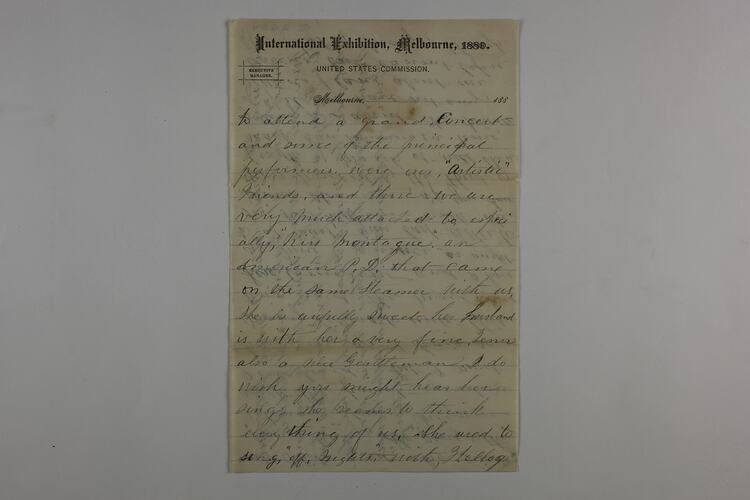 International Exhibition, Melbourne, 1880.
EXECUTIVE
MANAGER.
UNITED STATES COMMISSION.
Melbourne, 188
to attend a grand, Concert
and some of the principal
performers, were our, "Artistic"
Friends, and three we are
very much attached to espec
ially, "Miss Montague" an
American P. D. that came
on the same Steamer with us,
she is awfully sweet, her husband
is with her a very fine, Tenor
also a nice Gentleman. I do
wish you might hear her
sing, she seems to think
everything of us, She used to
sing, "off, nights," with, Kellogg